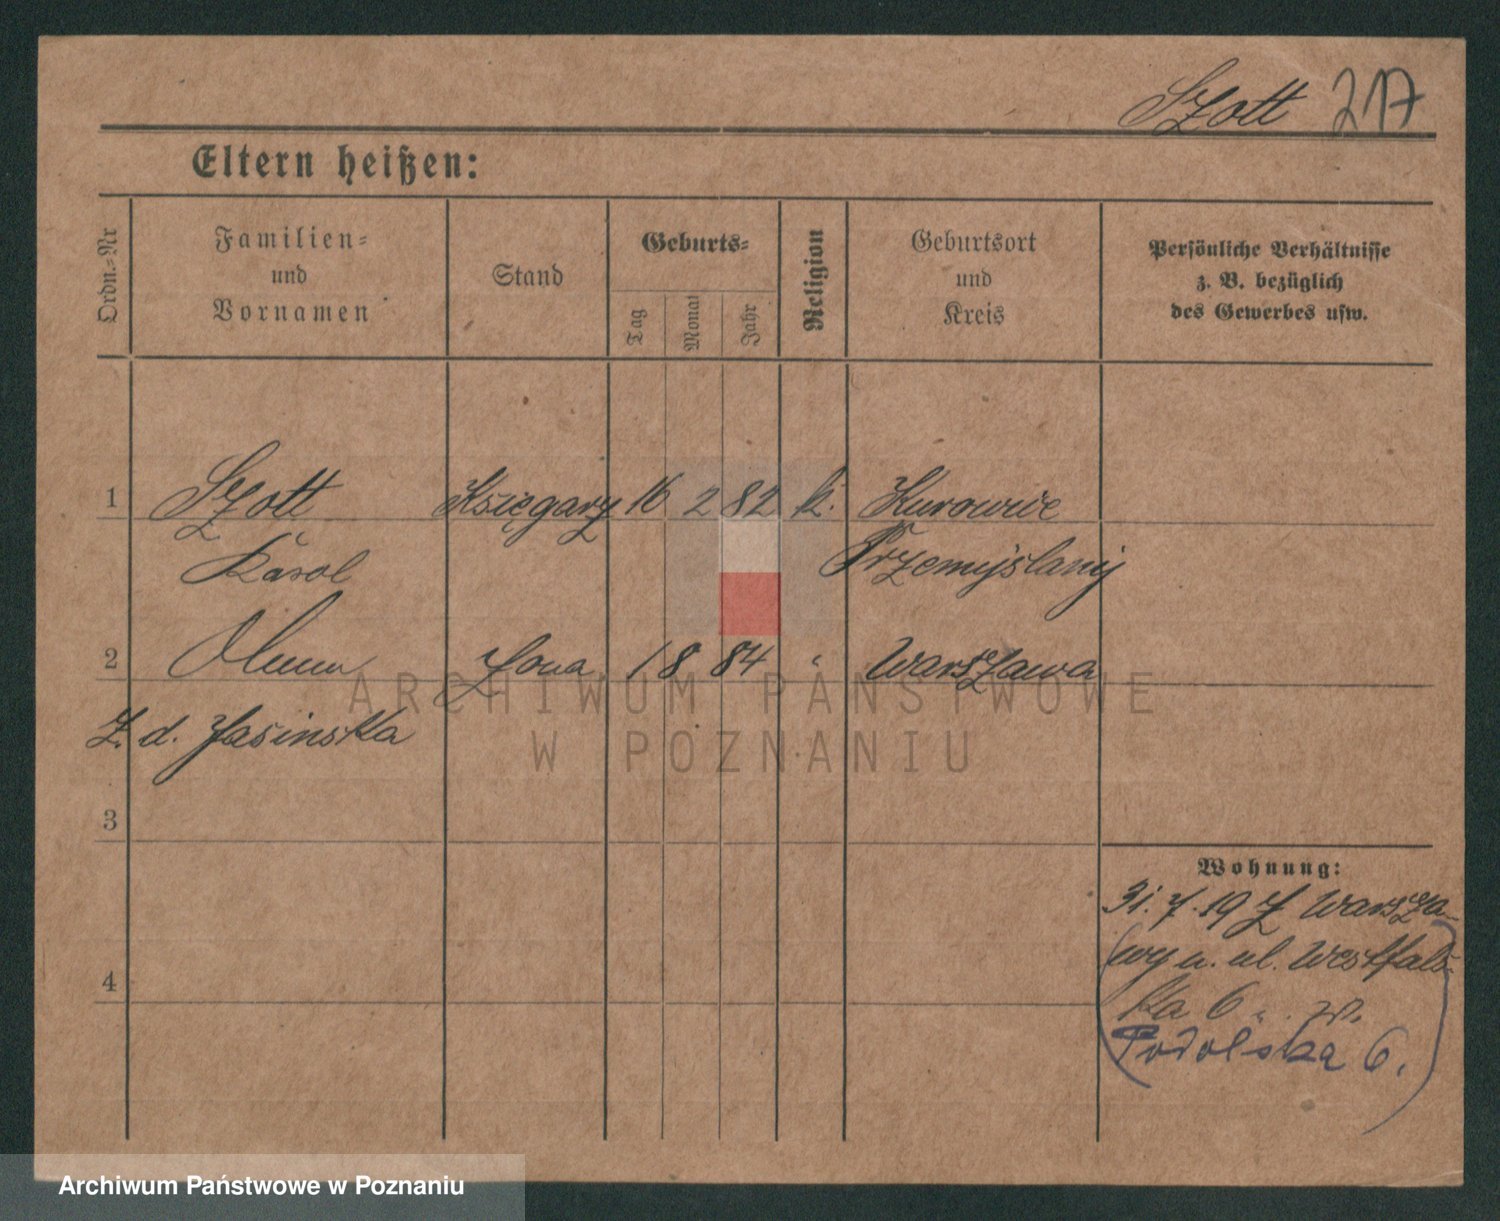 Szott 217
Eltern heißen:
Ordn.-Nr
Familien-
und
Vornamen
Stand
Geburts-
Tag
Monat
Jahr
Religion
Geburtsort
und
Kreis
Persönliche Verhältnisse
z. B. bezüglich
des Gewerbes usw.
1 Szott Księgarz 16 2 82 k. Kurowice
Karol Przemyślany
2 żona 1 8 84 " Warszawa
Z. d. Jasinska
3
4
Wohnung:
31.7.19 Z Warsza-
wy u. ul. Westfals-
ka 6
Podolska 6.
ARCHIWUM PAŃSTWOWE
W POZNANIU
Archiwum Państwowe w Poznaniu